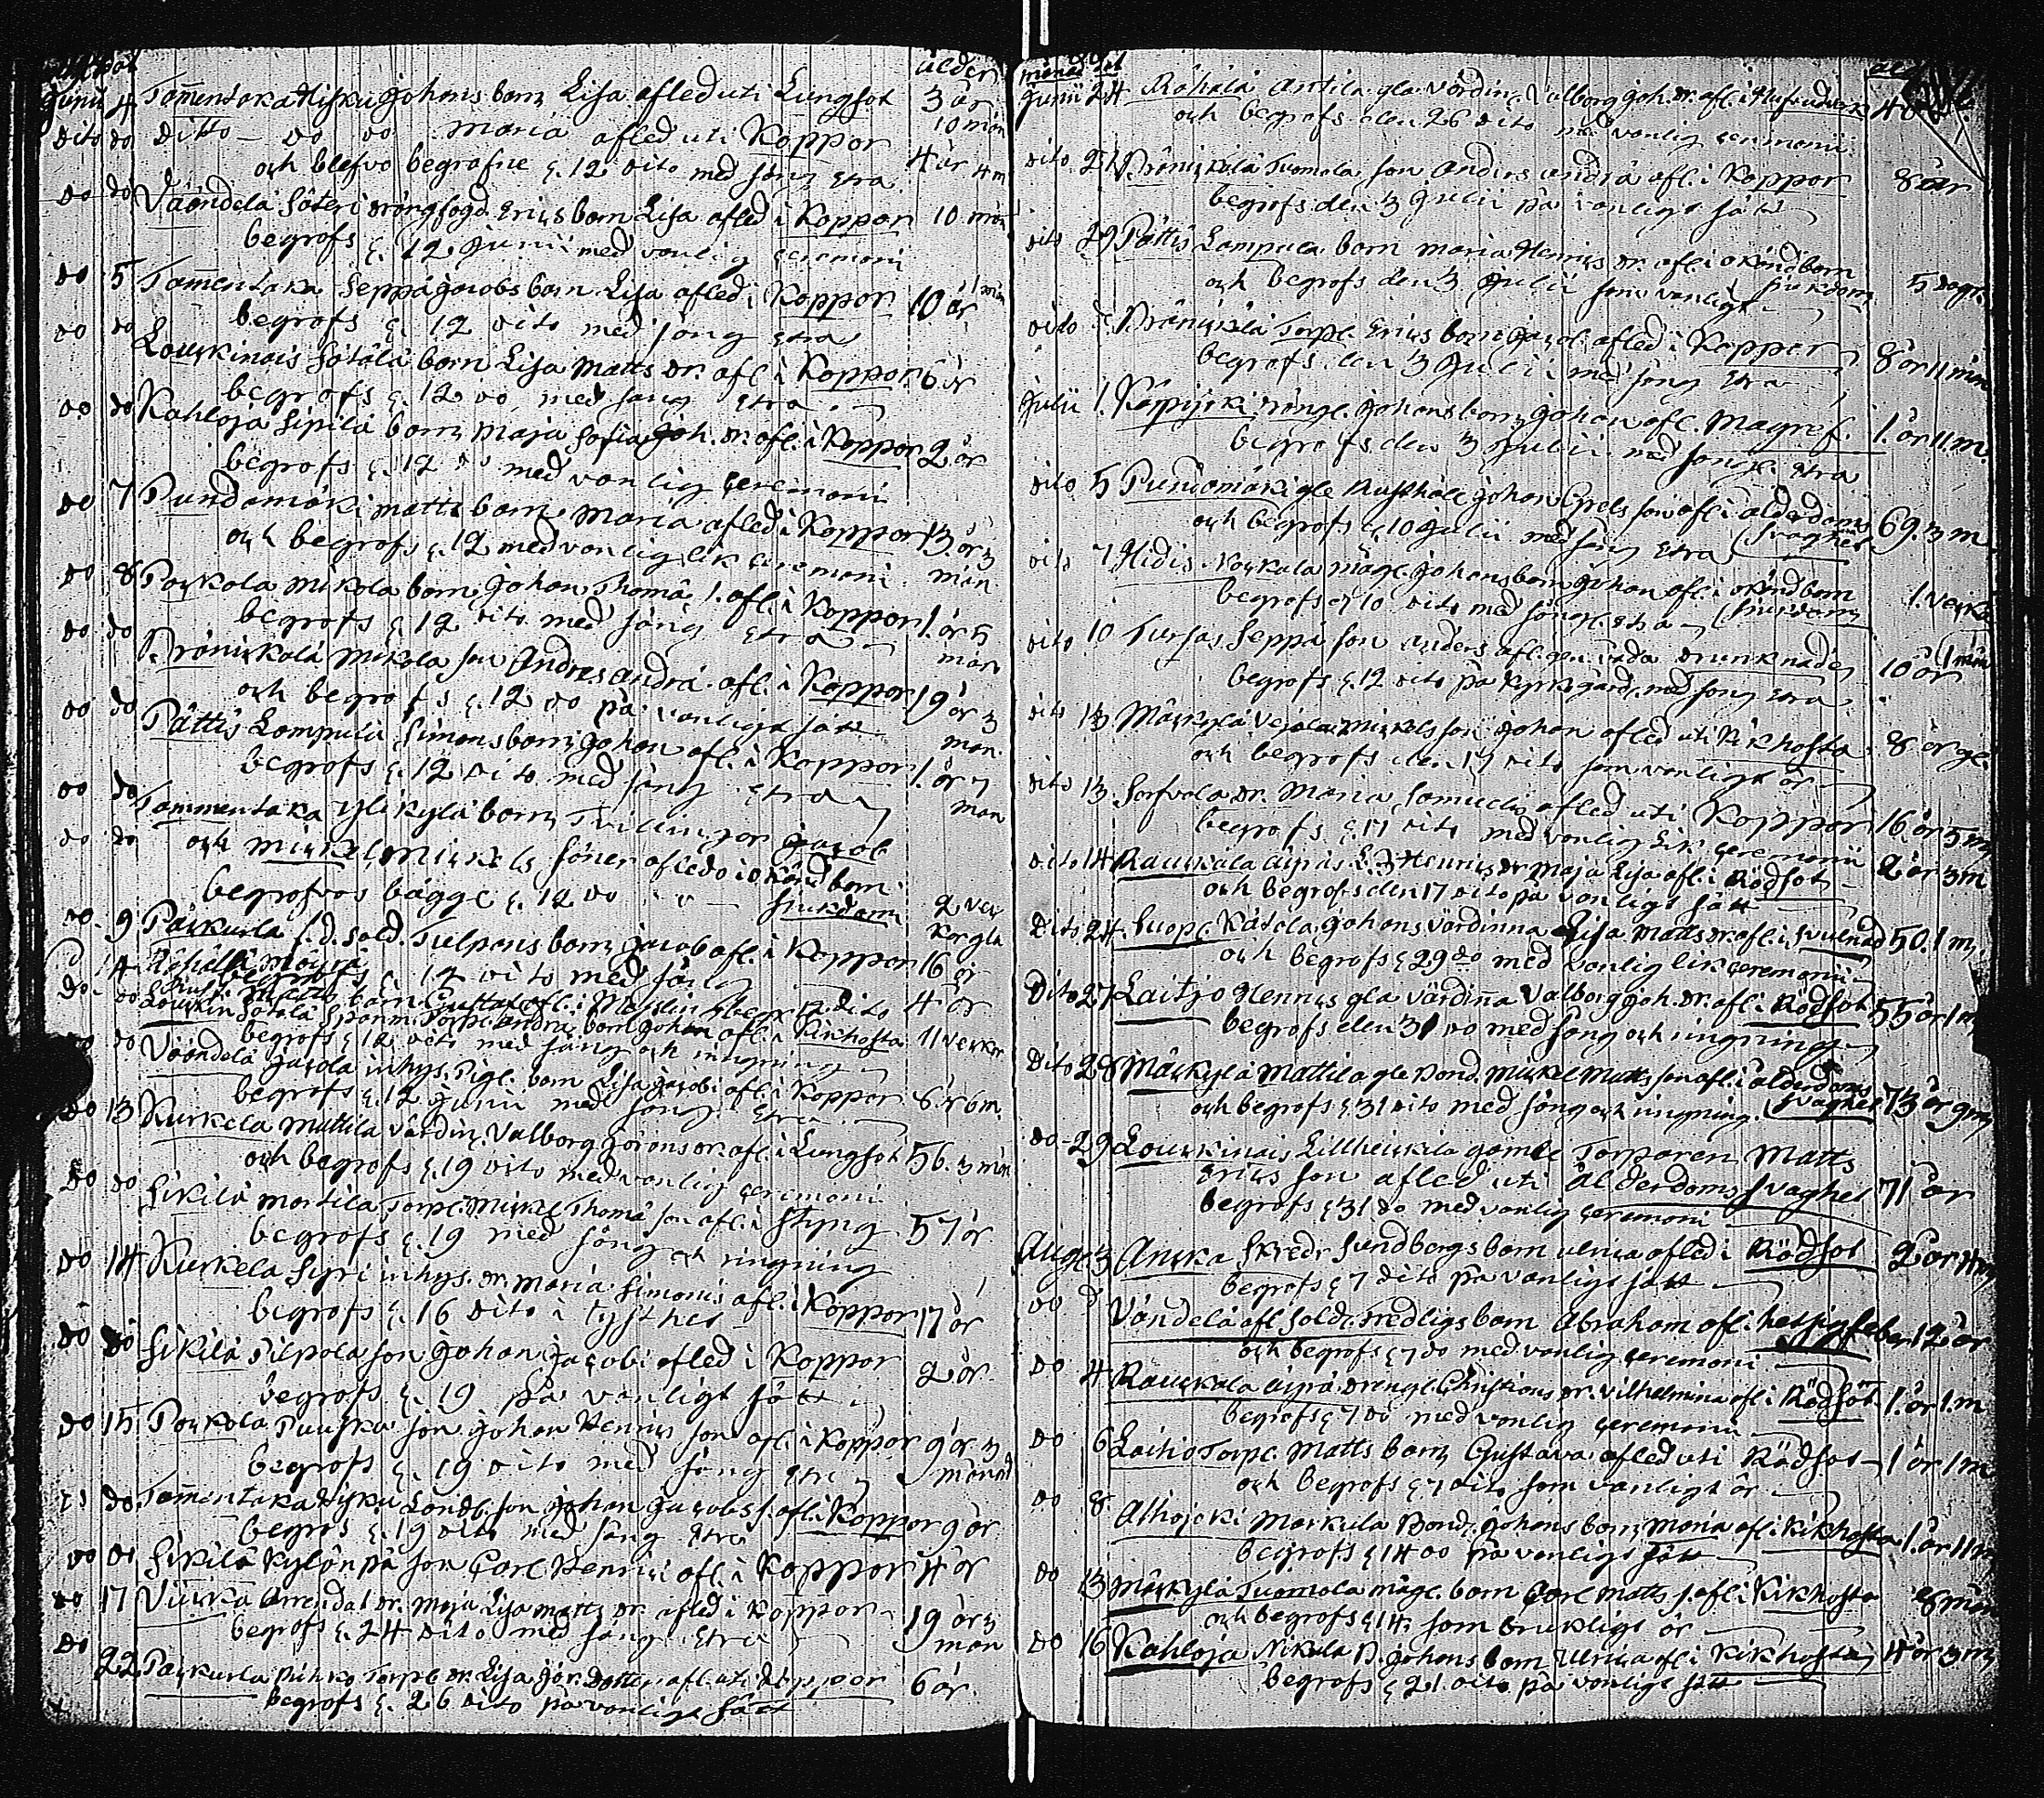 ålder
Junii 4 Tammentaka Hisku Johans barn Lisa afled uti Lungsot 3 år
dito do ditto - do do Maria afled uti Koppor 10 mån
och blefvo begrafne d. 12 dito med sång etra 4 år 4 m
do do Väändelä Säteri drängfogd Erics barn Lisa afled i Koppor 10 mån
begrofs d. 12 Junii med vanlig ceremoni
do 5 Tammentaka Seppä Jacobs barn Lisa afled i Koppor 10 år 1 mån
begrofs d. 12 dito med sång etra
do do Louckinais Sotala barn Lisa Matts dr. afl. i Koppor 6 år
begrofs d. 12 do med sång etra
do do Kahloja Sipilä barn Maja Sofia Joh. dr. afl. i Koppor 2 år
begrofs d. 12 do med vanlig ceremoni
do 7 Pundamäki Matts barn Maria afled i Koppor 13 år 3 mån
och begrofs d. 12 med vanlig lik ceremoni
do 8 Pockola Mickola barn Johan Thomä s. afl. i Koppor 1. år 5 mån
begrofs d. 12 dito med sång etra
do do Pränickälä Mickola son Andreas Andrä afl. i Koppor 19 år 3 mån.
och begrofs d. 12 do på vanligt sätt
do do Pättis Lampula Simons barn Johan afl. i Koppor 1. år 7 mån
begrofs d. 12 dito med sång etra
do do Tammentaka Ylikylä barn Tvillingar Jacob
do do och Mickel, Mickels söner afledo i okänd barn
begrofvos bägge d. 12 do sjukdom 2 veckor gla
do. 9 Päckurla f.d. sold. Tulpans barn Jacob afl. i Koppor 16 år
begrofs d. 12 dito med sång
do do Louckin Sotala Torp. Andrä barn Johan afl. i Kikhosta 11 veckor
begrofs d. 12 dito med sång och ringning
do do Väändelä Jacola inhys. Pigl. barn Lisa Jacobi afl. i Koppor 6 år 6 m.
begrofs d. 12 Junii med sång etra
do 13 Kurkela Mattila värdin. Valborg Görans dr. afl. i Lungsot 56. 3 mån
och begrofs d. 19 dito med vanlig ceremoni
do do Sikilä Martila Torp. Mickel Thomä son afl. i Styng 57 år
begrofs d. 19 med sång och ringning
do 14 Kurkela Syri inhys. dr. Maria Simonis afl. i Koppor 17 år
begrofs d. 16 dito i tysthet
do do Sikilä Pilpola son Johan Jacobi afled i Koppor 2 år
begrofs d. 19 på vanligt sätt
do 15 Pockola Puuska son Johan Henrics son afl. i Koppor 9 år 3 månad
begrofs d. 19 dito med sång etra
do do Tammentaka Hisku Landb. son Johan Jacobs s. afl. i Koppor 9 år
begrofs d. 19 dito med sång etra
do do Sikilä Kylänpä son Carl Henrici afl. i Koppor 4 år
do 17 Viicka Arrendat. dr. Maja Lisa Matts dr. afled i Koppor 19 år 3 mån
begrofs d. 24 dito med sång etra
do 22 Päckurla Torp. dr. Lisa Jör. dotter afl. uti Koppor 6 år
begrofs d. 26 dito på vanligt sätt
månad
Junii 24 Rähälä Antila gla värdin. Valborg Joh. dr. afl. i
och begrofs den 26 dito med vanlig ceremoni
dito 27 Pränickälä Tuomola son Anders Andrä afl. i Koppor 8 år
begrofs den 3 Julii på vanligt sätt
dito 29 Pättis Lampula barn Maria Henrics dr. afl. i okänd barn sjukdom 5 dagar
och begrofs den 3 Julii som vanligt
dito d. Pränickälä Torp. Erics barn Jacob afled i Koppor 8 år 11 mån
begrofs den 3 Julii med sång etra
Julii 1. Karpijoki drängl. Johans barn Johan afl. Magref. 1. år 11 m.
begrofs den 3 Julii med sång etra
dito 5 Pundamäki gle Rusthåll. Johan Grels son afl. i ålderdoms svaghet 69. 3 m.
och begrofs d. 10 Julii med sång etra
dito 7 Hidis Kockala mågl. Johans barn Johan afl. i okänd barn sjukdom 1. vecka
begrofs d. 10 dito med sång etra
dito 10 Tursas Seppä son Anders afl. gen. våda drunknade 10 år 1 mån
begrofs d. 12 dito på kyrkogård. med sång etra
dito 13 Mäckylä Vejola Mickels son Johan afled uti Kikhosta 8 år gl.
och begrofs den 17 dito som vanligt är
dito 13 Sorfvola dr. Maria Samuels afled uti Koppor 16 år 5 m
begrofs d. 17 dito med vanlig Lik ceremonii
dito 14 Rauckala Äijrä L. Henrics dr. Maja Lisa afl. i Rödsot 2 år 3 m
och begrofs den 17 dito på vanligt sätt
Dito 24 Suop. Kätola Johans värdinna Lisa Matts dr. afl. i Svulnad 50. 1 m
och begrofs d. 29 do med vanlig lik ceremonii
Dito 27 Laitjo Henrics gla värdinna Valborg Joh. dr. afl. i Rödsot 55 år 1 m
begrofs den 31 do med sång och ringning
Dito 28 Mäckylä Mattila gle bond. Mickel Matts son afl. i ålderdoms svaghet 73 år 9 m
och begrofs d. 31 dito med sång och ringning
do 29 Louckinais Lillheickilä gamle Torparen Matts
Erics son afled uti Ålderdoms svaghet 71 år
begrofs d. 31 do med vanlig ceremoni
Aug. 3 Aucka Skredr Sundbergs barn Ulrica afled i Rödsot 2 år 4 m
begrofs d. 7 dito på vanligt sätt
do d. Vändelä afl. sold. Fredligs barn Abraham afl. i hetsig feber 12 år
och begrofs d. 7 do med vanlig ceremoni
do 4 Rauckala Äijrä Drengl. Christians dr. Vilhelmina afl. i Rödsot 1. år 1. m
begrofs d. 7 do med vanlig ceremoni
do 6 Laitio Torp. Matts barn Gustava afled uti Rödsot 1 år 1 m
och begrofs d. 7 dito som vanligt är
do 8 Alhojoki Markula Bond. Johans barn Maria afl. i Kikhosta 1. år 11 m
begrofs d. 14 do på vanligt sätt
do 13 Mäckylä Tuomola mågl. barn Carl Matts s. afl. i Kikhosta 8 mån
och begrofs d. 14 som brukligt är
do 16 Kahloja Nikula B. Johans barn Ulrica afl. i Kikhosta 4 år 3 m
begrofs d. 21. dito på vanligt sätt